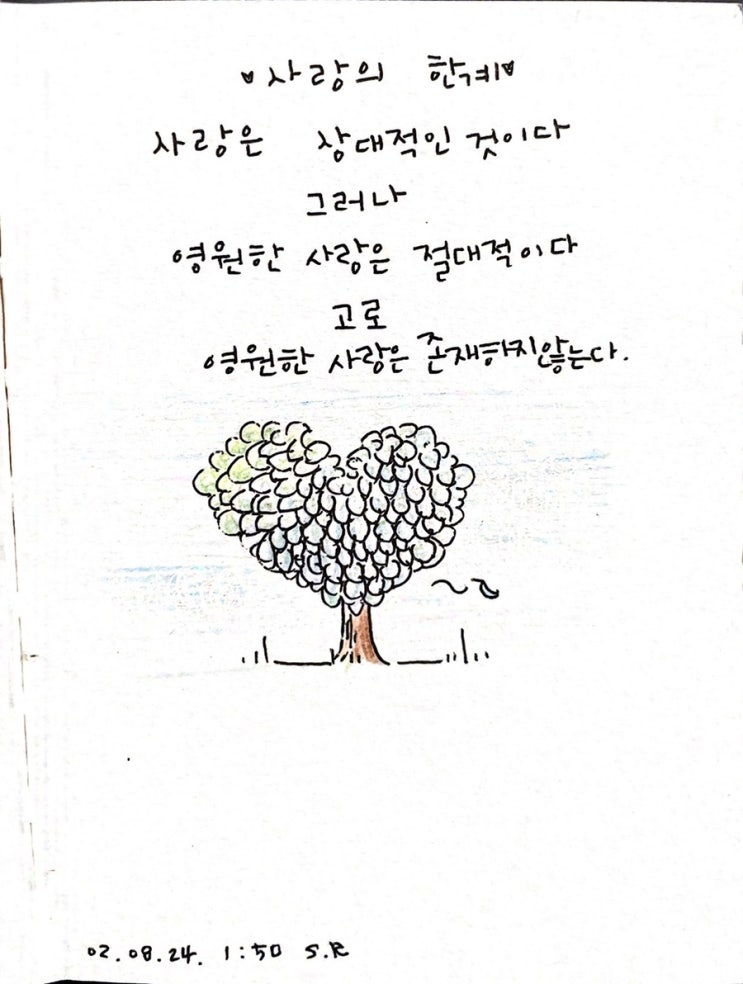 ♥사랑의 한계♥
사랑은 상대적인 것이다
그러나
영원한 사랑은 절대적이다
고로
영원한 사랑은 존재하지않는다.
02.08.24. 1:50 S.R